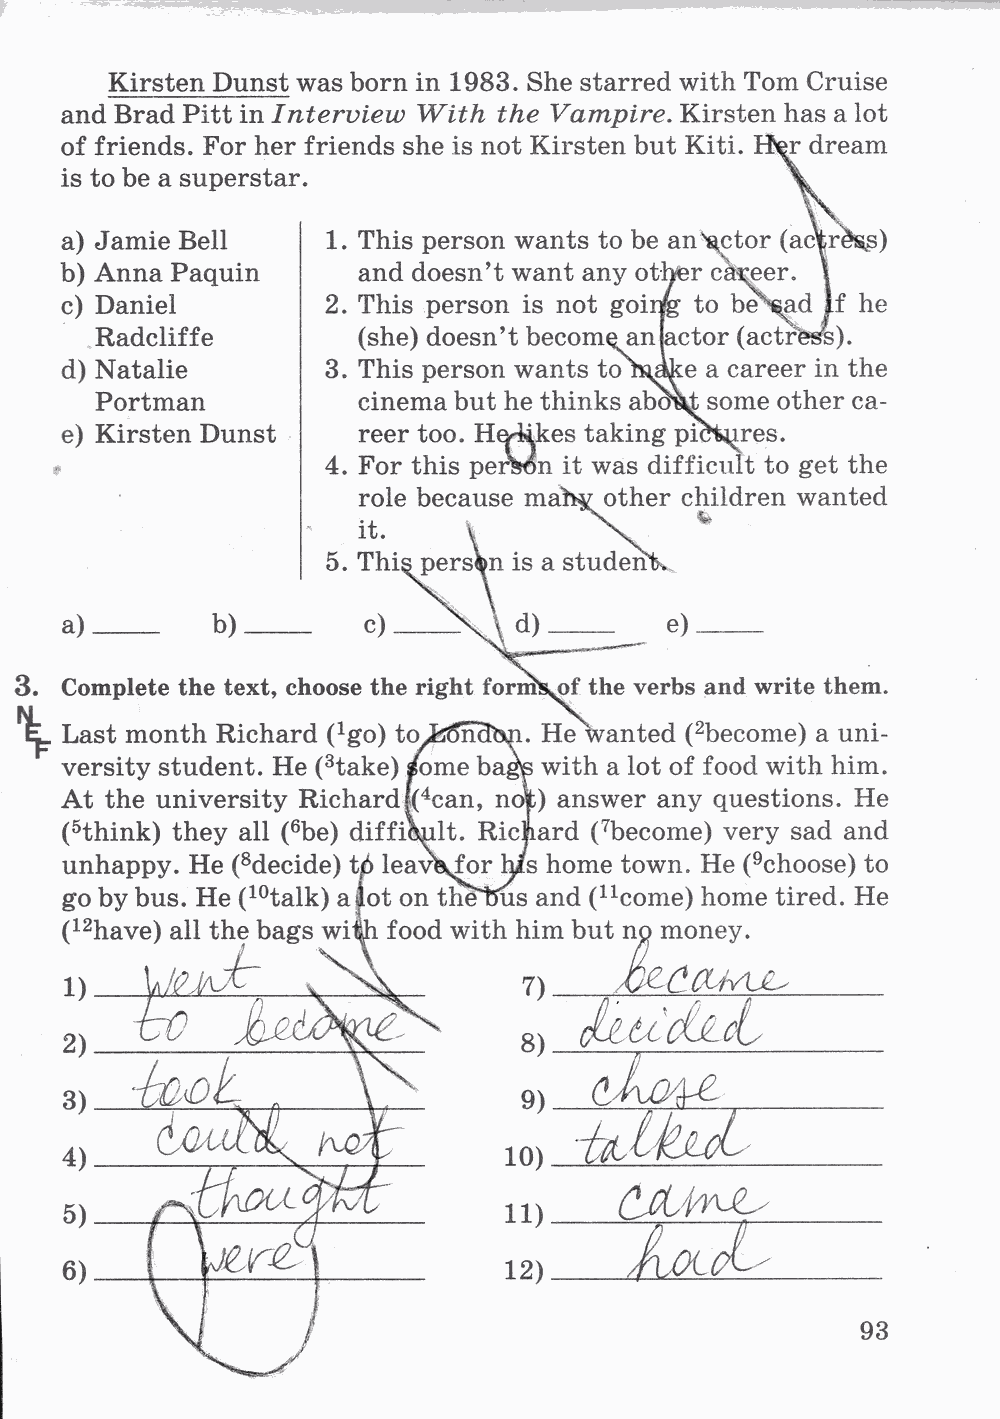 Kirsten Dunst was born in 1983. She starred with Tom Cruise
and Brad Pitt in Interview With the Vampire. Kirsten has a lot
of friends. For her friends she is not Kirsten but Kiti. Her dream
is to be a superstar.
a) Jamie Bell
b) Anna Paquin
c) Daniel
Radcliffe
d) Natalie
Portman
e) Kirsten Dunst
1. This person wants to be an actor (actress)
and doesn't want any other career.
2. This person is not going to be sad if he
(she) doesn't become an actor (actress).
3. This person wants to make a career in the
cinema but he thinks about some other ca-
reer too. He likes taking pictures.
4. For this person it was difficult to get the
role because many other children wanted
it.
5. This person is a student.
a) _____ b) _____ c) _____ d) _____ e) _____
3. Complete the text, choose the right forms of the verbs and write them.
NEF
Last month Richard (¹go) to London. He wanted (²become) a uni-
versity student. He (³take) some bags with a lot of food with him.
At the university Richard (⁴can, not) answer any questions. He
(⁵think) they all (⁶be) difficult. Richard (⁷become) very sad and
unhappy. He (⁸decide) to leave for his home town. He (⁹choose) to
go by bus. He (¹⁰talk) a lot on the bus and (¹¹come) home tired. He
(¹²have) all the bags with food with him but no money.
1) went
2) to become
3) took
4) could not
5) thought
6) were
7) became
8) decided
9) chose
10) talked
11) came
12) had
93